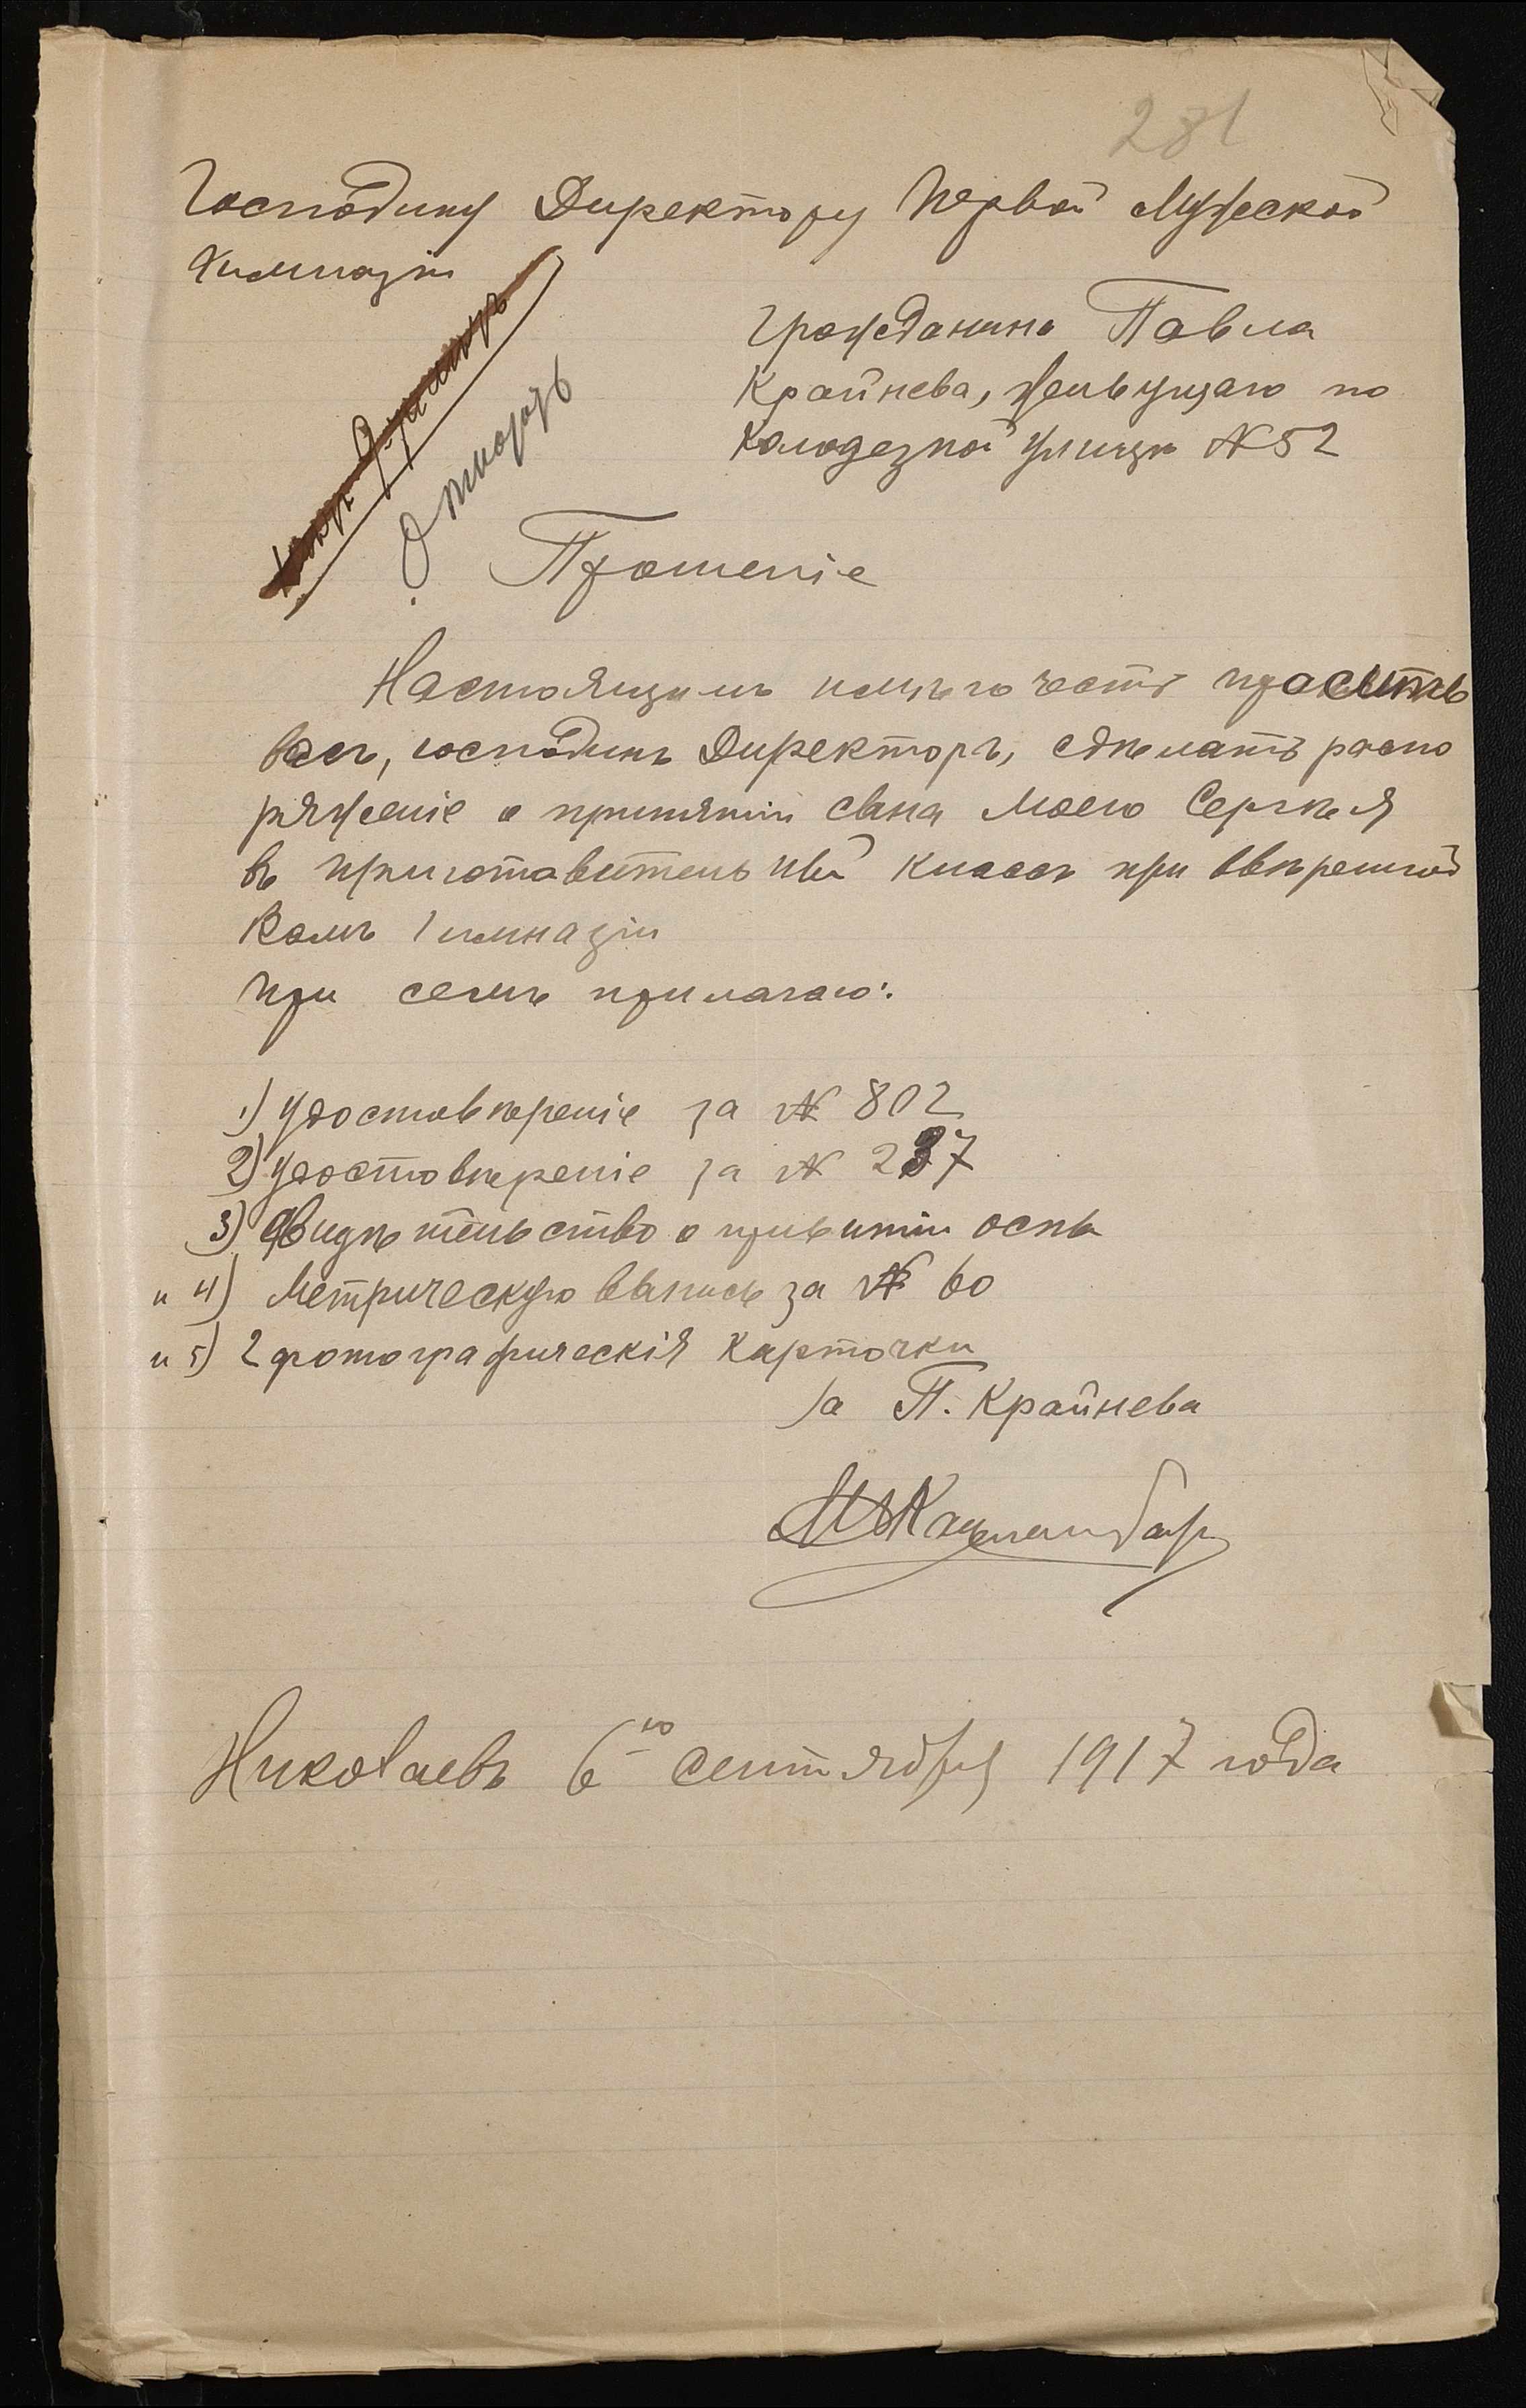 281
Господину Директору Первой Мужеской
Гимназіи
Гражданина Павла
Крайнева, живущаго по
Колодезной улицѣ № 52
Отказъ
Прошеніе
Настоящимъ имѣю честь просить
Васъ, господинъ Директоръ, сдѣлать распо
ряженіе о принятіи сына моего Сергѣя
въ приготовительный классъ при ввѣренной
Вамъ Гимназіи
При семъ прилагаю:
1) Удостовѣреніе за № 802
2) Удостовѣреніе за № 237
3) Свидѣтельство о привитіи оспы
и 4) Метрическую выпись за № 60
и 5) 2 фотографическія карточки
За П. Крайнева
Николаевъ 6го сентября 1917 года